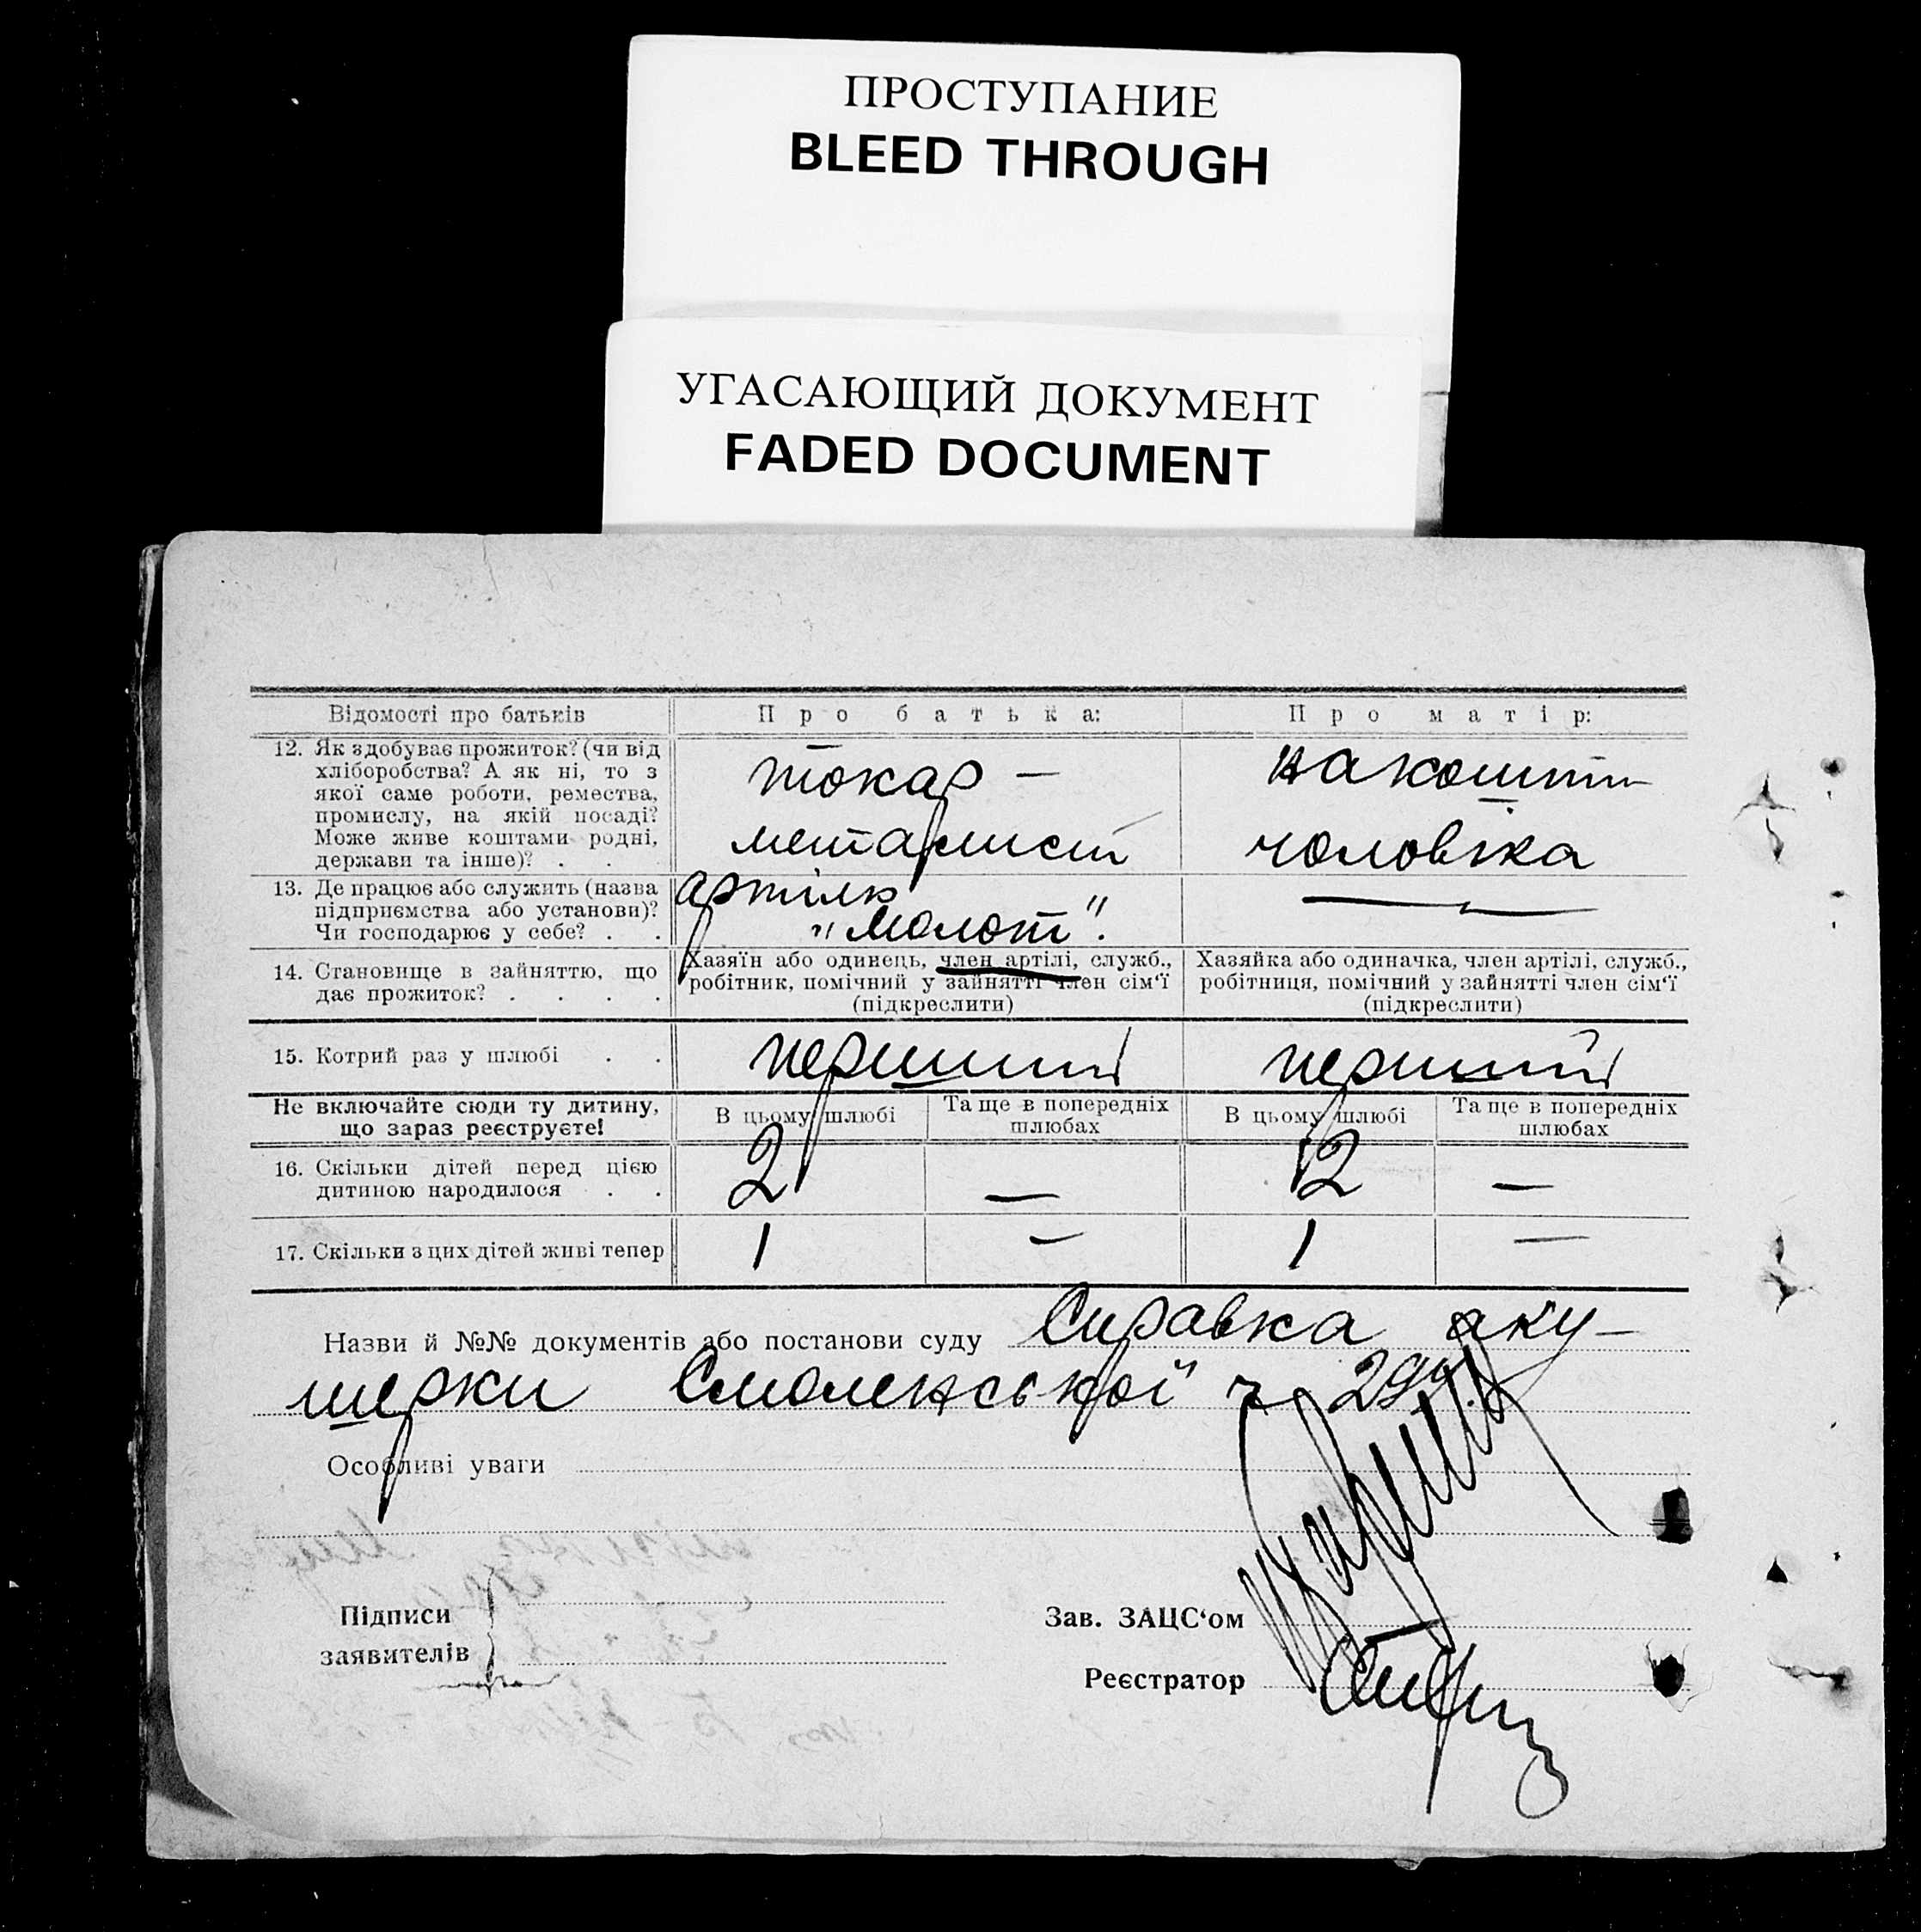 ПРОСТУПАНИЕ
BLEED THROUGH
УГАСАЮЩИЙ ДОКУМЕНТ
FADED DOCUMENT
Відомості про батьків Про батька: Про матір:
12. Як здобуває прожиток? (чи від
хліборобства? А як ні, то з
якої саме роботи, ремества,
промислу, на якій посаді?
Може живе коштами родні,
держави та інше)? . . .
токар –
металист
на кошти
чоловіка
13. Де працює або служить (назва
підприємства або установи)?
Чи господарює у себе? . .
артіль
„Молот".
14. Становище в зайняттю, що
дає прожиток? . . . .
Хазяїн або одинець, член артілі, служб.,
робітник, помічний у зайнятті член сім'ї
(підкреслити)
Хазяйка або одиначка, член артілі, служб.,
робітниця, помічний у зайнятті член сім'ї
(підкреслити)
15. Котрий раз у шлюбі . . перший перший
Не включайте сюди ту дитину,
що зараз реєструєте!
В цьому шлюбі
Та ще в попередніх
шлюбах
В цьому шлюбі
Та ще в попередніх
шлюбах
16. Скільки дітей перед цією
дитиною народилося . . 2 — 2 —
17. Скільки з цих дітей живі тепер 1 — 1 —
Назви й №№ документів або постанови суду Справка аку-
шерки Смоленської
Особливі уваги
Підписи
заявителів
Зав. ЗАЦС'ом
Реєстратор